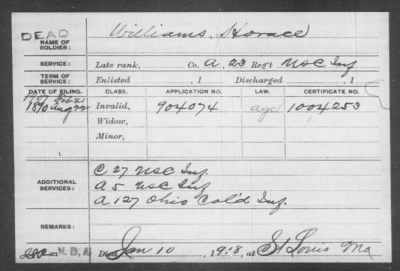 DEAD
NAME OF SOLDIER: Williams, Horace
SERVICE: Late rank, Co. A, 23 Reg't USC Inf
TERM OF SERVICE: Enlisted , 1 Discharged , 1
DATE OF FILING. CLASS. APPLICATION NO. LAW. CERTIFICATE NO.
1907 Feb 21
1890 Aug 22 Invalid, 904074 age 1004253
Widow,
Minor,
C 27 USC Inf
ADDITIONAL SERVICES: A 5 USC Inf
A 127 Ohio Col'd Inf.
REMARKS:
N.D.A. Died Jan 10, 1918, at St Louis Mo